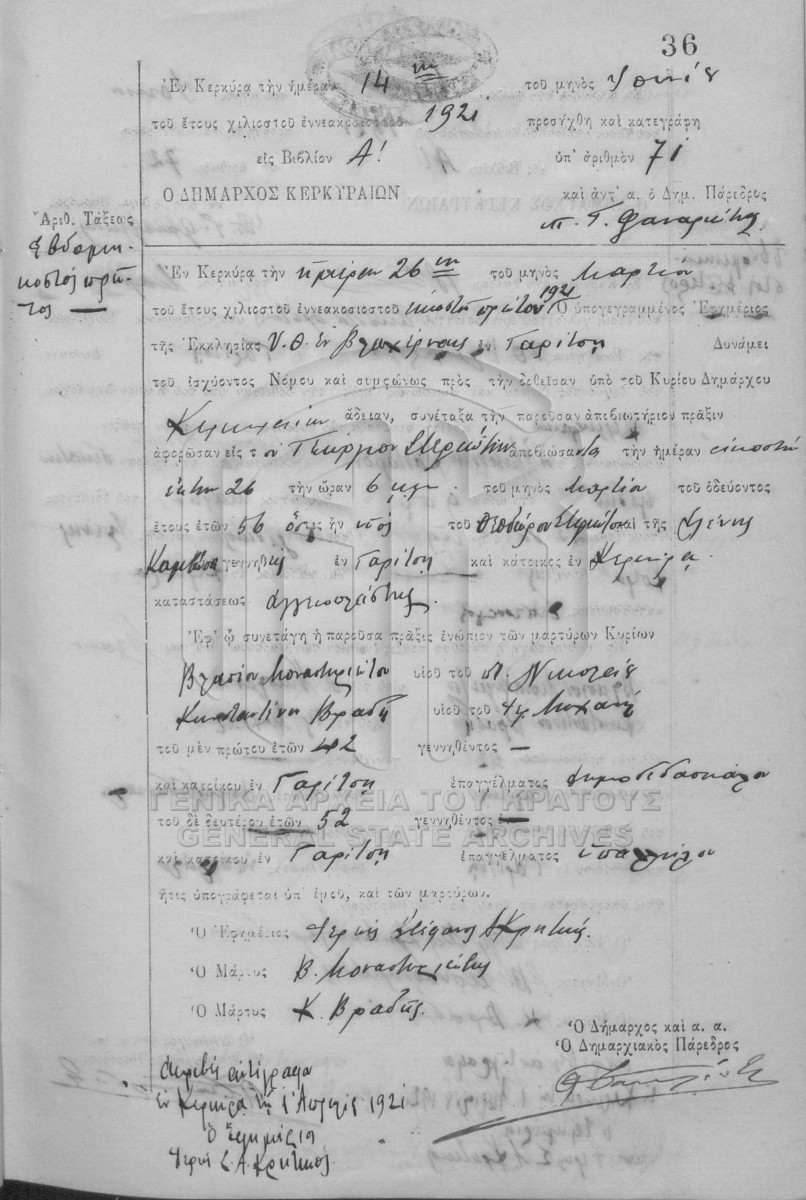 36
Ἐν Κερκύρᾳ τὴν ἡμέραν 14 τοῦ μηνὸς
τοῦ ἔτους χιλιοστοῦ ἐννεακοσιοστοῦ 1921 προσήχθη καὶ κατεγράφη
εἰς Βιβλίον Α! ὑπ' ἀριθμὸν 71
Ο ΔΗΜΑΡΧΟΣ ΚΕΡΚΥΡΑΙΩΝ καὶ ἀντ' α. ὁ Δημ. Πάρεδρος
Ἀριθ. Τάξεως
Ἑβδομη-
κοστός πρῶ-
τος —
Ἐν Κερκύρᾳ τὴν ἡμέραν 26ην τοῦ μηνὸς Μαρτίου
τοῦ ἔτους χιλιοστοῦ ἐννεακοσιοστοῦ εἰκοστοῦ πρώτου 1921 Ὁ ὑπογεγραμμένος Ἐφημέριος
τῆς Ἐκκλησίας Υ.Θ. ἐν Βλαχέρναις ἐν Γαρίτσῃ Δυνάμει
τοῦ ἰσχύοντος Νόμου καὶ συμφώνως πρὸς τὴν δοθεῖσαν ὑπὸ τοῦ Κυρίου Δημάρχου
Κερκυραίων ἄδειαν, συνέταξα τὴν παροῦσαν ἀποβιωτήριον πρᾶξιν
ἀφορῶσαν εἰς τὸν Γεώργιον ἀποβιώσαντα τὴν ἡμέραν εἰκοστήν
ἕκτην 26 τὴν ὥραν 6 τοῦ μηνὸς Μαρτίου τοῦ ὁδεύοντος
ἔτους ἐτῶν 56 ὅστις ἦν υἱός τοῦ Θεοδώρου καὶ τῆς Ἑλένης
γεννηθείς ἐν Γαρίτσῃ καὶ κάτοικος ἐν Κερκύρᾳ.
καταστάσεως ἀγγειοπλάστης.
Ἐφ' ᾧ συνετάγη ἡ παροῦσα πρᾶξις ἐνώπιον τῶν μαρτύρων Κυρίων
Βλασίου Μοναστηριώτου υἱοῦ τοῦ Νικολάου
Κωνσταντίνου Βραδῆ υἱοῦ τοῦ Μιχαήλ
τοῦ μὲν πρώτου ἐτῶν 42 γεννηθέντος —
καὶ κατοίκου ἐν Γαρίτσῃ ἐπαγγέλματος δημοδιδασκάλου
ΓΕΝΙΚΑ ΑΡΧΕΙΑ ΤΟΥ ΚΡΑΤΟΥΣ
τοῦ δὲ δευτέρου ἐτῶν 52 γεννηθέντος —
GENERAL STATE ARCHIVES
καὶ κατοίκου ἐν Γαρίτσῃ ἐπαγγέλματος ὑπαλλήλου
ἥτις ὑπογράφεται ὑπ' ἐμοῦ, καὶ τῶν μαρτύρων.
Ὁ Ἐφημέριος Ἱερεὺς Στέφανος Α Κρητικός.
Ὁ Μάρτυς Β. Μοναστηριώτης
Ὁ Μάρτυς Κ. Βραδῆς.
Ὁ Δήμαρχος καὶ α. α.
Ὁ Δημαρχιακὸς Πάρεδρος
Ἀκριβές ἀντίγραφον
ἐν Κερκύρᾳ τῇ 1 Ἀπριλίου 1921
Ὁ Ἐφημέριος
Ἱερεὺς Σ. Α. Κρητικός.